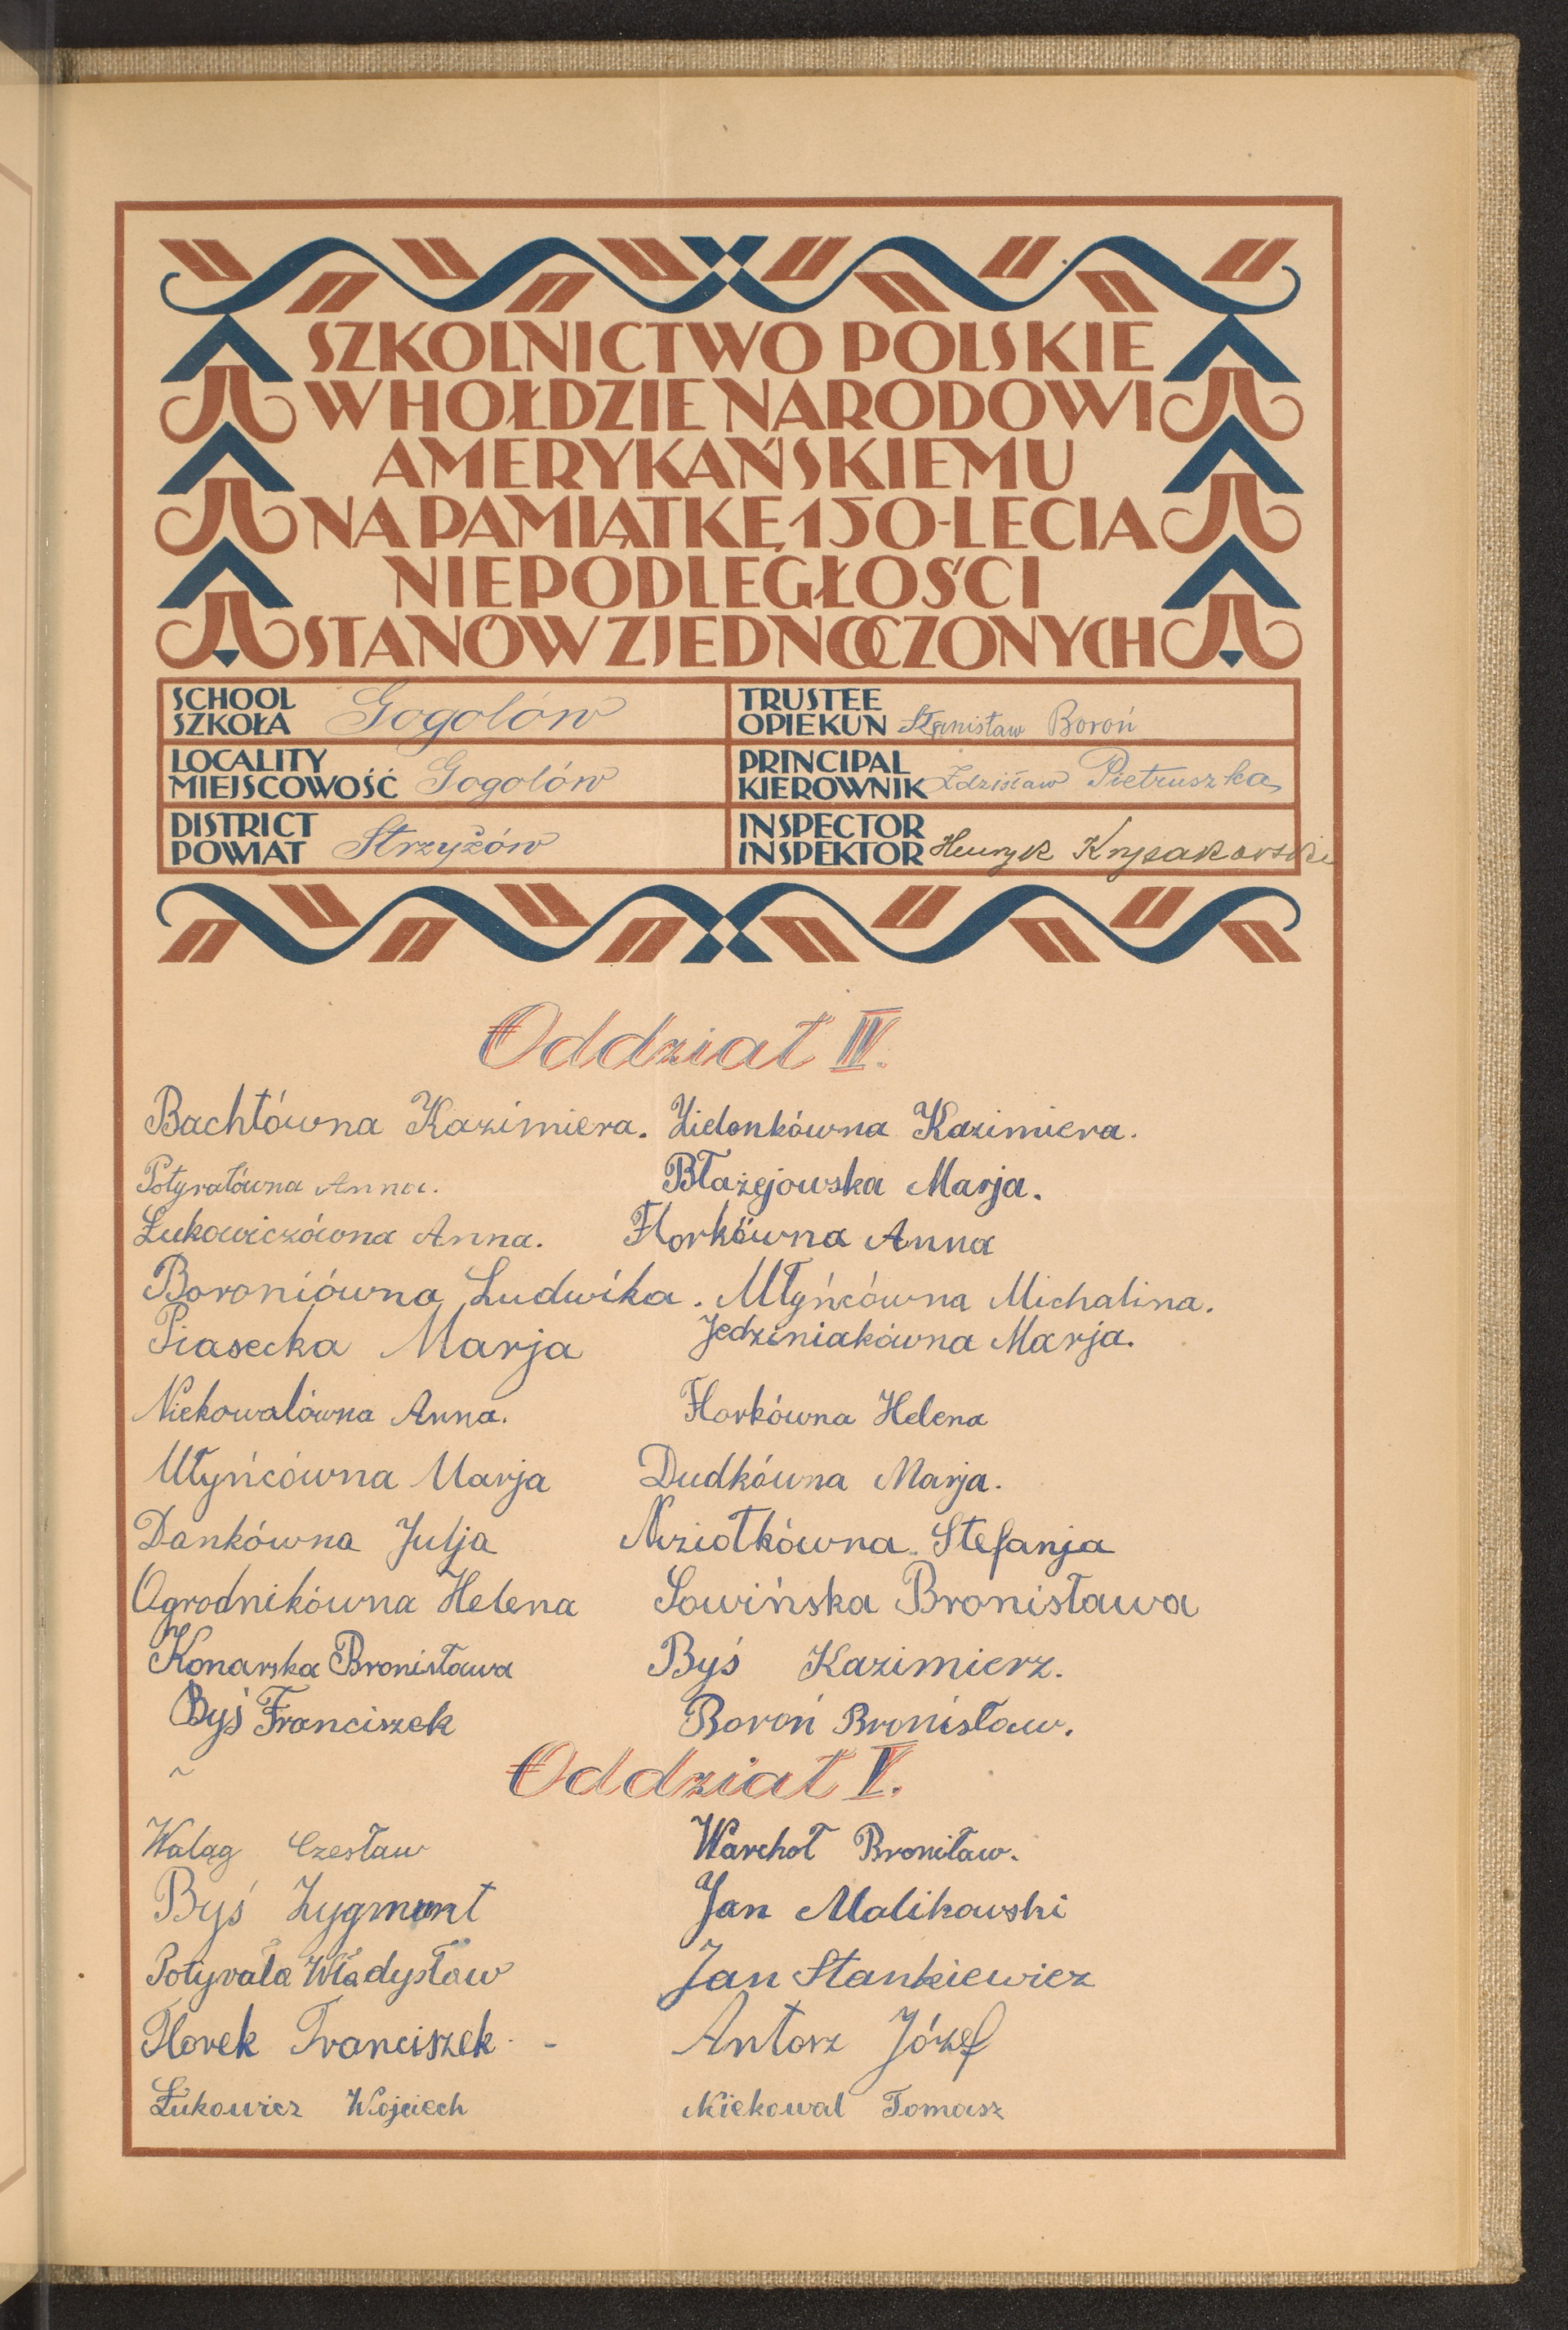 SZKOLNICTWO POLSKIE
W HOŁDZIE NARODOWI
AMERYKAŃSKIEMU
NA PAMIĄTKĘ 150-LECIA
NIEPODLEGŁOŚCI
STANÓW ZJEDNOCZONYCH
SCHOOL
SZKOŁA Gogolów
TRUSTEE
OPIEKUN Stanisław Boroń
LOCALITY
MIEJSCOWOŚĆ Gogolów
PRINCIPAL
KIEROWNIK Zdzisław Pietruszka
DISTRICT
POWIAT Strzyżów
INSPECTOR
INSPEKTOR Henryk
Oddział IV.
Bachłówna Kazimiera. Zielonkówna Kazimiera.
Potyrałówna Anna. Błażejowska Marja.
Łukowiczówna Anna. Florkówna Anna
Boroniówna Ludwika. Młyńcówna Michalina.
Piasecka Marja Jedziniakówna Marja.
Niekowalówna Anna. Florkówna Helena
Młyńcówna Marja Dudkówna Marja.
Dankówna Julja Niziołkówna Stefanja
Ogrodnikówna Helena Sowińska Bronisława
Konarska Bronisława Byś Kazimierz.
Byś Franciszek Boroń Bronisław.
Oddział V.
Waląg Czesław Warchoł Broniław.
Byś Zygmunt Jan Malikowski
Potyrała Władysław Jan Stankiewicz
Florek Franciszek. - Antosz Józef
Łukowicz Wojciech Niekowal Tomasz